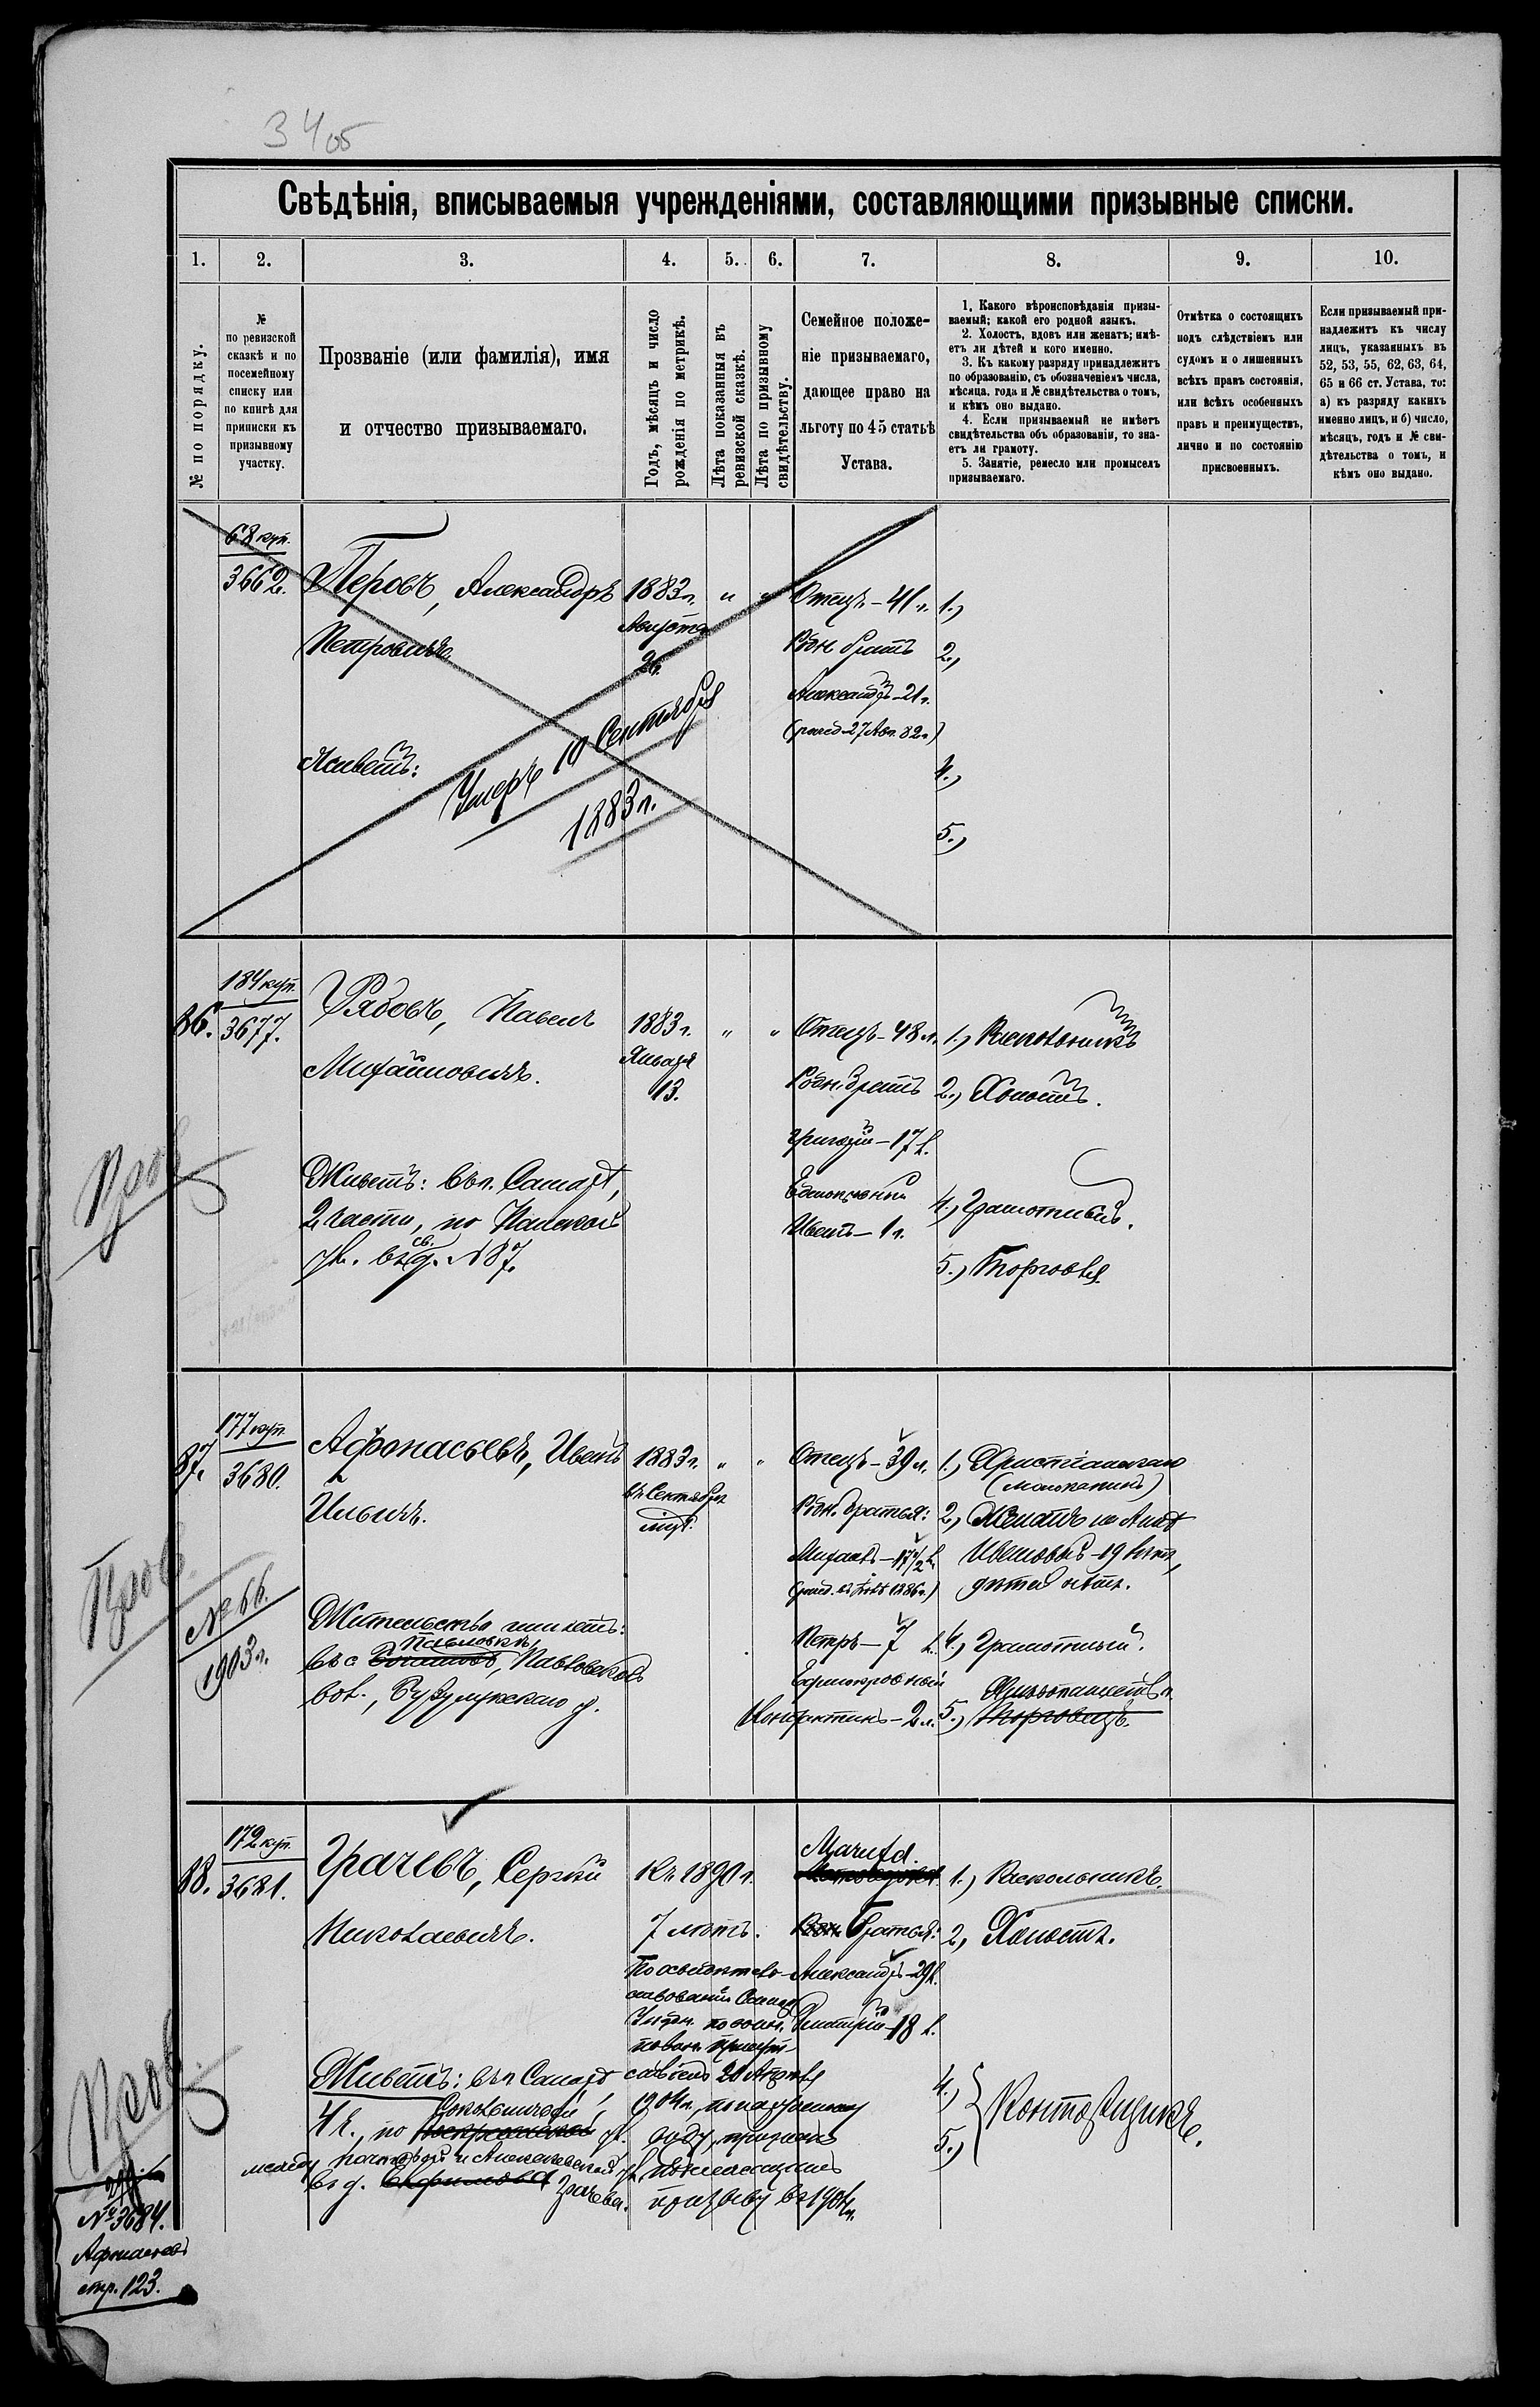 34об
Свѣдѣнія, вписываемыя учрежденіями, составляющими призывные списки.
1. 2. 3. 4. 5. 6. 7. 8. 9. 10.
№ по порядку.
№
по ревизской
сказкѣ и по
посемейному
списку или
по книгѣ для
приписки къ
призывному
участку.
Прозваніе (или фамилія), имя
и отчество призываемаго.
Годъ, мѣсяцъ и число
рожденія по метрикѣ.
Лѣта показанныя въ
ревизской сказкѣ.
Лѣта по призывному
свидѣтельству.
Семейное положе-
ніе призываемаго,
дающее право на
льготу по 45 статьѣ
Устава.
1. Какого вѣроисповѣданія призы-
ваемый; какой его родной языкъ.
2. Холостъ, вдовъ или женатъ; имѣ-
етъ ли дѣтей и кого именно.
3. Къ какому разряду принадлежитъ
по образованію, съ обозначеніемъ числа,
мѣсяца, года и № свидѣтельства о томъ,
и кѣмъ оно выдано.
4. Если призываемый не имѣетъ
свидѣтельства объ образованіи, то зна-
етъ ли грамоту.
5. Занятіе, ремесло или промыселъ
призываемаго.
Отмѣтка о состоящихъ
подъ слѣдствіемъ или
судомъ и о лишенныхъ
всѣхъ правъ состоянія,
или всѣхъ особенныхъ
правъ и преимуществъ,
лично и по состоянію
присвоенныхъ.
Если призываемый при-
надлежитъ къ числу
лицъ, указанныхъ въ
52, 53, 55, 62, 63, 64,
65 и 66 ст. Устава, то:
а) къ разряду какихъ
именно лицъ, и б) число,
мѣсяцъ, годъ и № сви-
дѣтельства о томъ, и
кѣмъ оно выдано.
68 куп.
3662.
Перовъ, Александръ
Петровичъ
Живетъ:
Умеръ 10 Сентября
1883 г.
1883 г.
Августа
26.
" "
Отецъ - 41 г.
Родн. братъ
Александръ - 21 г.
(рожд. 27 Авг. 82 г.)
1.,
2.,
4.,
5.,
86.
184 куп.
3677.
Рябовъ, Павелъ
Михайловичъ.
Живетъ: въ г. Самарѣ,
2 части, по
ул. въ св. д. № 87.
1883 г.
Января
13.
" "
Отецъ - 48 л.
Родн. братъ
Григорій - 17 л.
Единокровный
Иванъ - 1 г.
1., Раскольникъ
2., Холостъ.
4., Грамотный.
5., Торговля.
Пров.
87.
177 куп.
3680.
Афонасьевъ, Иванъ
Ильичъ.
Жительство имѣетъ:
Павловкѣ,
въ с. Павловской
вол., Бузулукскаго у.
1883 г.
въ Сентябрѣ
мцѣ.
" "
Отецъ - 39 л.
Родн. братья:
Михаилъ - 17 1/2 л.
1886 г.)
Петръ - 7 л.
Единокровный
- 2 л.
1., Христіанскаго
(молоканинъ)
2., Женатъ на Аннѣ
Ивановой - 19 лѣтъ,
дѣтей нѣтъ.
4., Грамотный.
Хлѣбопашество
5., Торговецъ.
Пров.
№ 66.
1903 г.
88.
172 куп.
3681.
Грачевъ, Сергѣй
Николаевичъ.
Живетъ: въ г. Самарѣ,
4 ч., по ул.
между и Алексѣевской ул.
въ д. Грачева.
Къ 1890 г.
7 лѣтъ.
По освидѣтель-
ствованіи Самар.
Уѣздн. по воин.
повин. присут-
ствіемъ 20 Апрѣля
1904 г., по наружному
виду, признанъ
подлежащимъ
призыву въ 1904 г.
Мачеха.
Братья:
Александръ - 29 л.
Дмитрій - 18 л.
1., Раскольникъ.
2., Холостъ.
4.,
5.,
Конторщикъ.
Пров.
№ 3684.
Афонасьевъ
стр. 123.